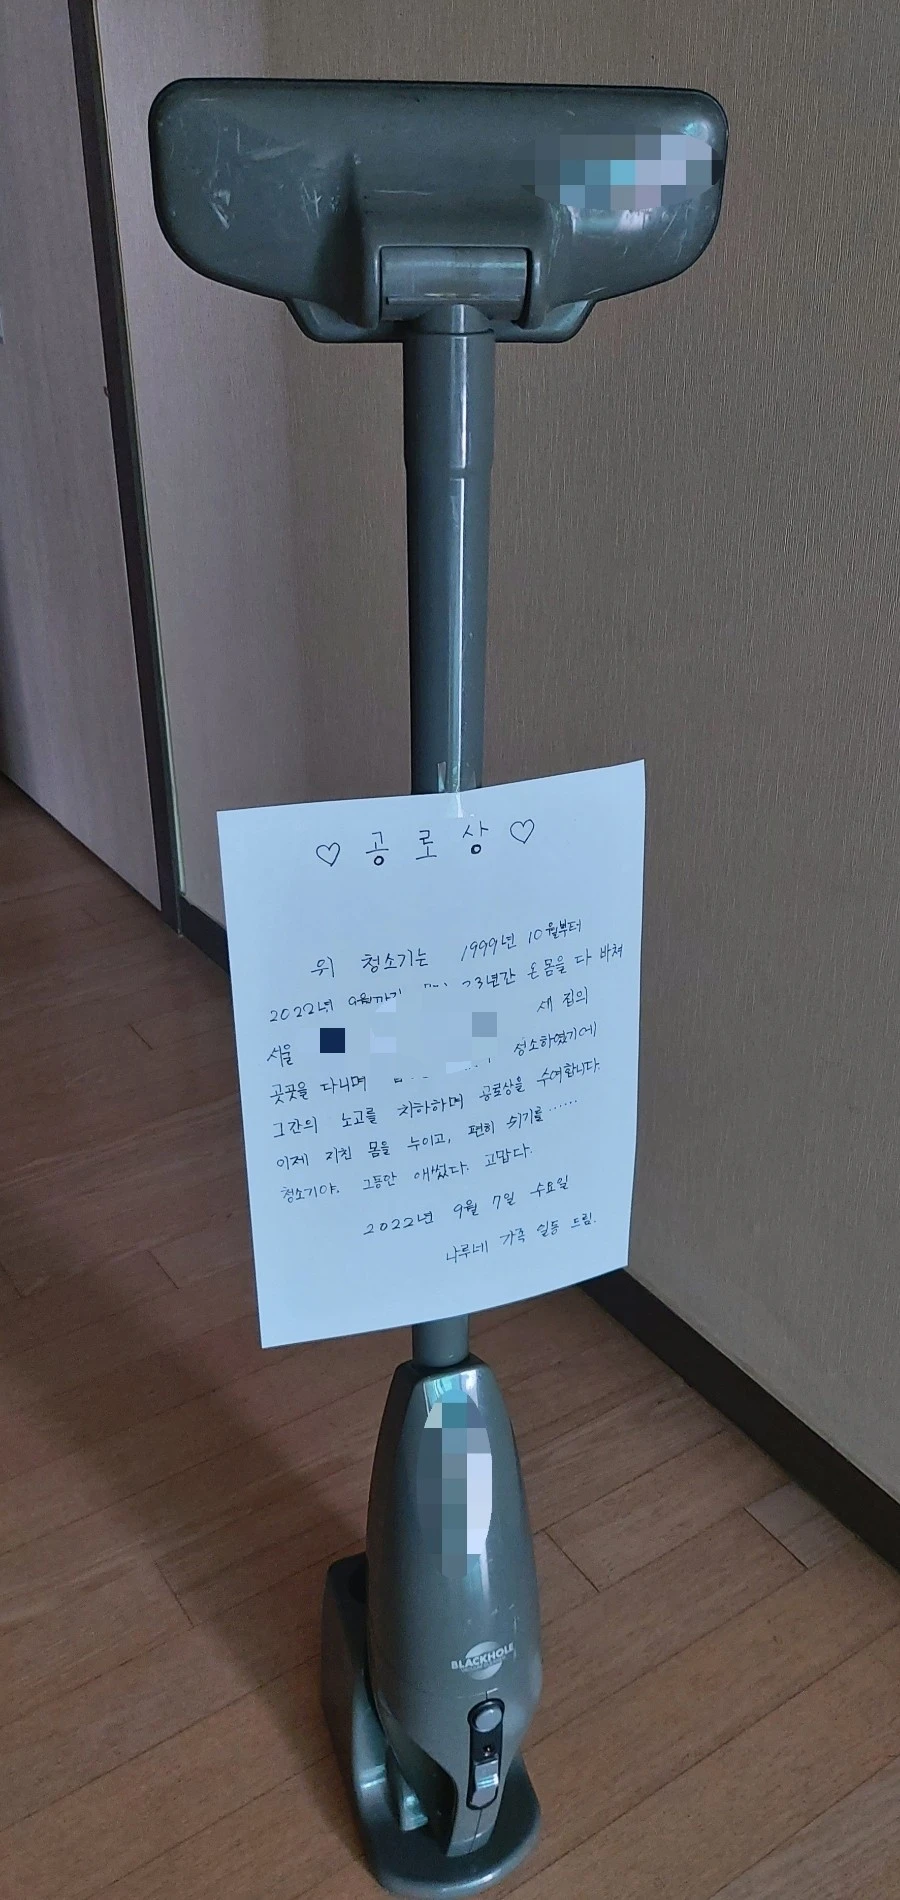 ♡ 공 로 상 ♡
위 청소기는 1999년 10월부터
2022년 9월까지 23년간 온몸을 다 바쳐
서울 세 집의
곳곳을 다니며 청소하였기에
그간의 노고를 치하하며 공로상을 수여합니다.
이제 지친 몸을 누이고, 편히 쉬기를……
청소기야. 그동안 애썼다. 고맙다.
2022년 9월 7일 수요일
나루네 가족 일동 드림.
BLACKHOLE